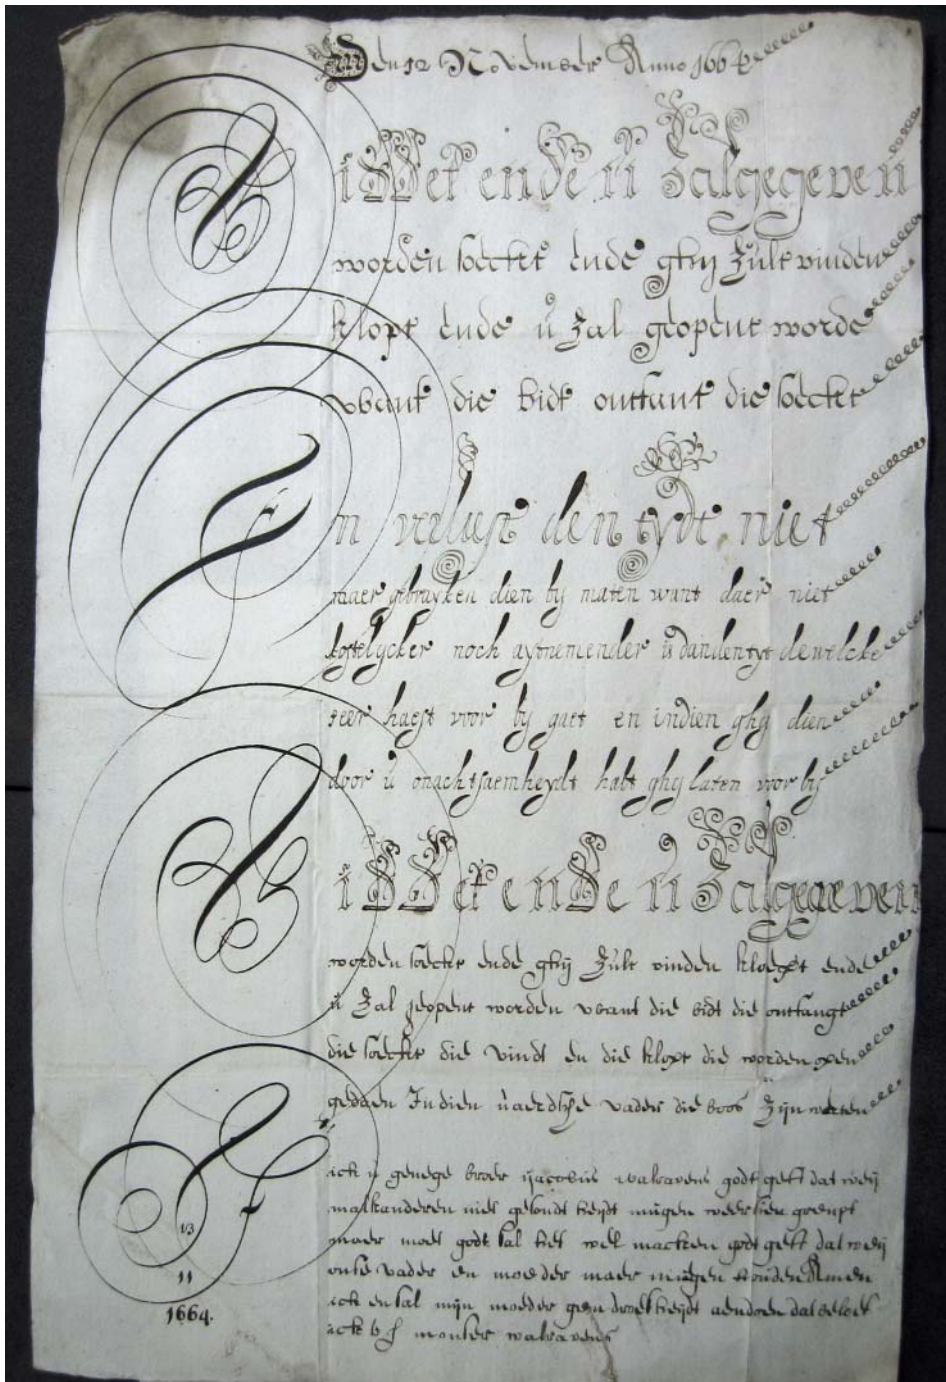 Den 12 November Anno 1664
Biddet ende u Zal gegeven
worden soecket ende ghij Zult vinden
klopt ende u Zal geopent worde
want die bidt onttant die soecket
En verliest den tydt niet
maer gebruyken dien by maten want daer niet
kostelycker noch uytnemender is dan den tyt dewelcke
seer haest voor by gaet en indien ghy dien
door u onachtsaemheydt habt ghy laten voor by
Biddet ende u Zal gegeven
worden soeckt ende ghij Zult vinden kloept ende
u Zal geopent worden want die bidt die onttangt
die soeckt die vindt en die klopt die worden open
gedaen Indien u aerdtsche vader die boos Zijn weeten
ick u genege broer walravens godt geft dat weij
malkanderen met gesondt heijdt mugen weer sien
maer moet godt sal het wel macken godt geft dat weij
onse vader en moeder maer mugen houden Amen
ick en sal mijn moeder geen droefheijdt aendoen dat beloef
ick walravens
13
11
1664.